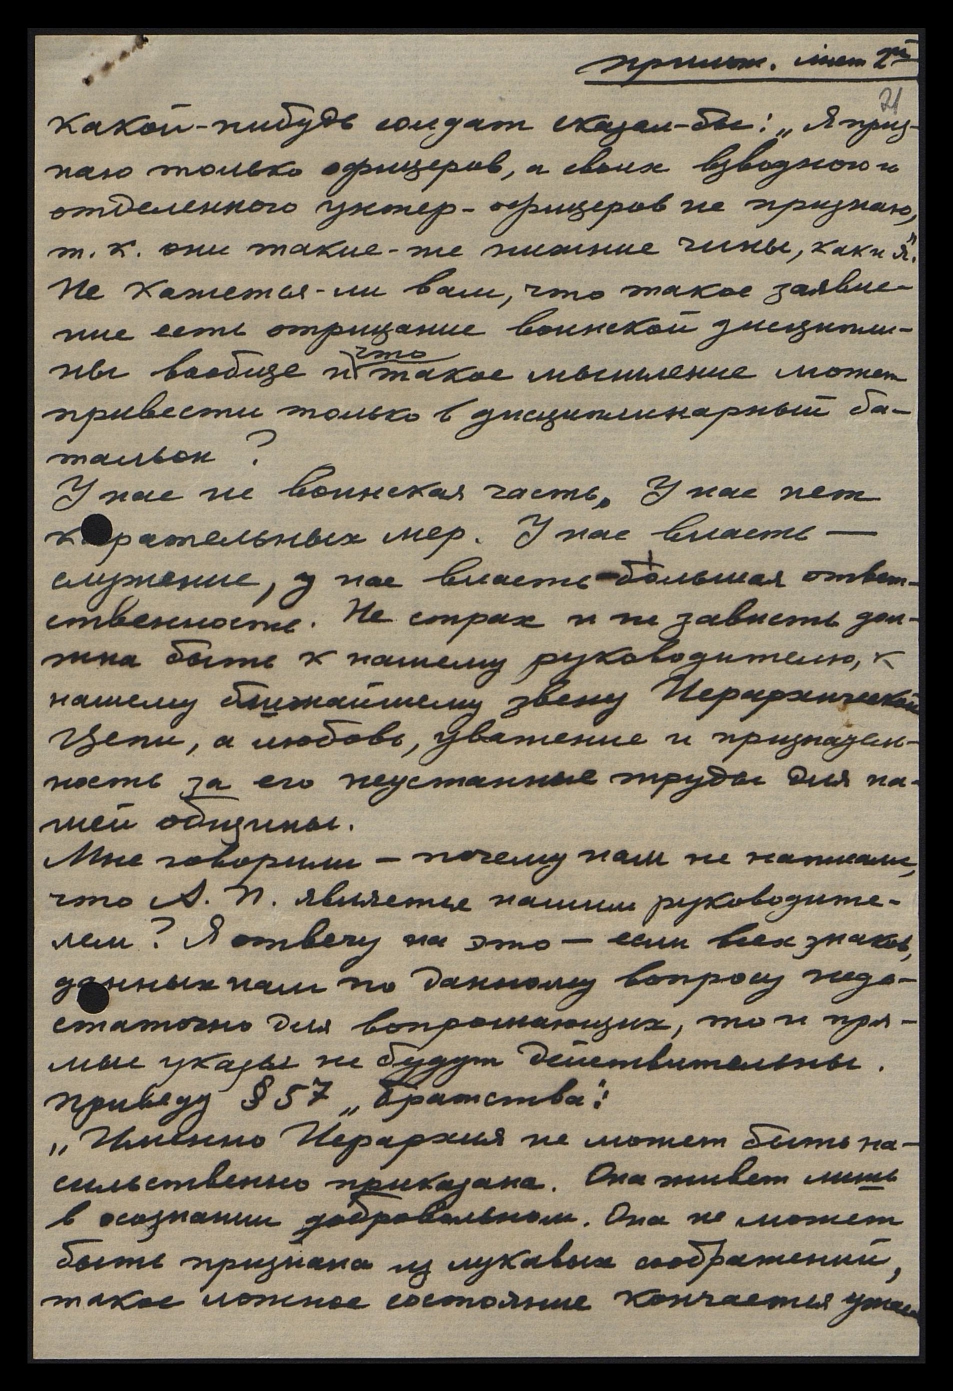 прилож. лист 2й
21
какой-нибудь солдат сказал-бы: „Я приз-
наю только офицеров, а своих взводного и
отделенного унтер-офицеров не признаю,
т. к. они такие-же нижние чины, как и я".
Не кажется-ли вам, что такое заявле-
ние есть отрицание воинской дисципли-
ны вообще и что такое мышление может
привести только в дисциплинарный ба-
тальон?
У нас не воинская часть. У нас нет
карательных мер. У нас власть —
служение, у нас власть - бо́льшая ответ-
ственность. Не страх и не зависть дол-
жна быть к нашему руководителю, к
нашему ближайшему звену Иерархической
Цепи, а любовь, уважение и признатель-
ность за его неустанные труды для на-
шей общины.
Мне говорили — почему нам не написали,
что А. П. является нашим руководите-
лем? Я отвечу на это — если всех знаков,
данных нам по данному вопросу недо-
статочно для вопрошающих, то и пря-
мые указы не будут действительны.
Приведу § 57 „Братства":
„Именно Иерархия не может быть на-
сильственно приказана. Она живет лишь
в осознании добровольном. Она не может
быть признана из лукавых соображений,
такое ложное состояние кончается ужасом